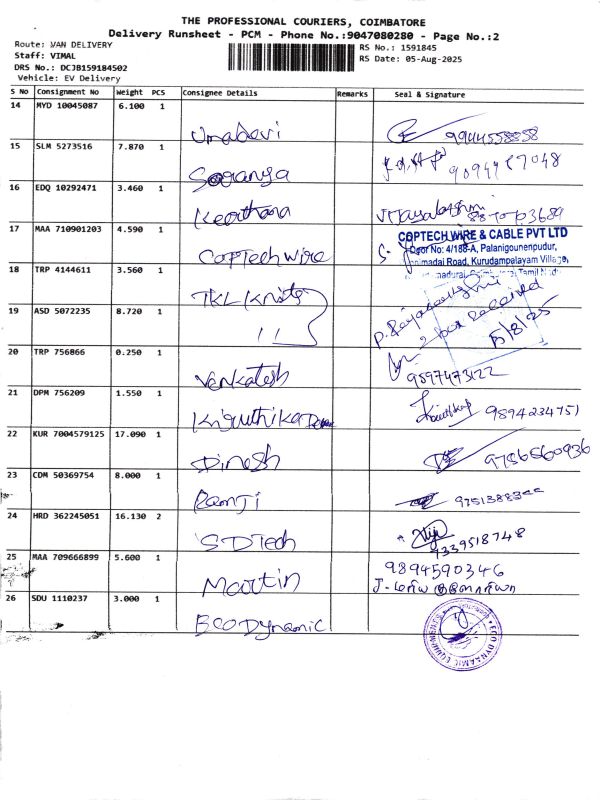 THE PROFESSIONAL COURIERS, COIMBATORE
Delivery Runsheet - PCM - Phone No.:9047080280 - Page No.:2
Route: VAN DELIVERY
Staff: VIMAL
DRS No.: DCJB159184502
Vehicle: EV Delivery
RS No.: 1591845
RS Date: 05-Aug-2025
S No Consignment No Weight PCS Consignee Details Remarks Seal & Signature
14 MYD 10045087 6.100 1
Umadevi
15 SLM 5273516 7.870 1
Saranya
16 EDQ 10292471 3.460 1
Keerthana
Vijayalakshmi
17 MAA 710901203 4.590 1
COPTech Wire
COPTECH WIRE & CABLE PVT LTD
Door No: 4/188-A, Palanigounenpudur,
Road, Kurudampalayam Village,
Tamil Nadu
18 TRP 4144611 3.560 1
TKL Knits
19 ASD 5072235 8.720 1
11
2 box Received
5/8/25
20 TRP 756866 0.250 1
Venkatesh
9597473122
21 DPM 756209 1.550 1
9894234751
22 KUR 7004579125 17.090 1
Dinesh
23 CDM 50369754 8.000 1
Ramji
24 HRD 362245051 16.130 2
SDTech
9339518748
25 MAA 709666899 5.600 1
Martin
9894590346
26 SDU 1110237 3.000 1
ECO Dynamic
ECO DYNAMIC EQUIPMENTS